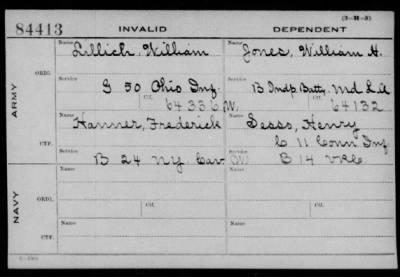 (3-H-3)
84413 INVALID DEPENDENT
ARMY
ORIG.
Name Lillich, William Name Jones, William H.
Service G 50 Ohio Inf. Service B Indp Batty. Md L.A
Ctf. 64336 (W) Ctf. 64132
CTF.
Name Hanner, Frederick Name Sesso, Henry
C 11 Conn Inf
Service B 24 NY. Cav (W) Service B 14 VRC
NAVY
ORIG.
Name Name
Service Ctf. Service Ctf.
CTF.
Name Name
Service Service